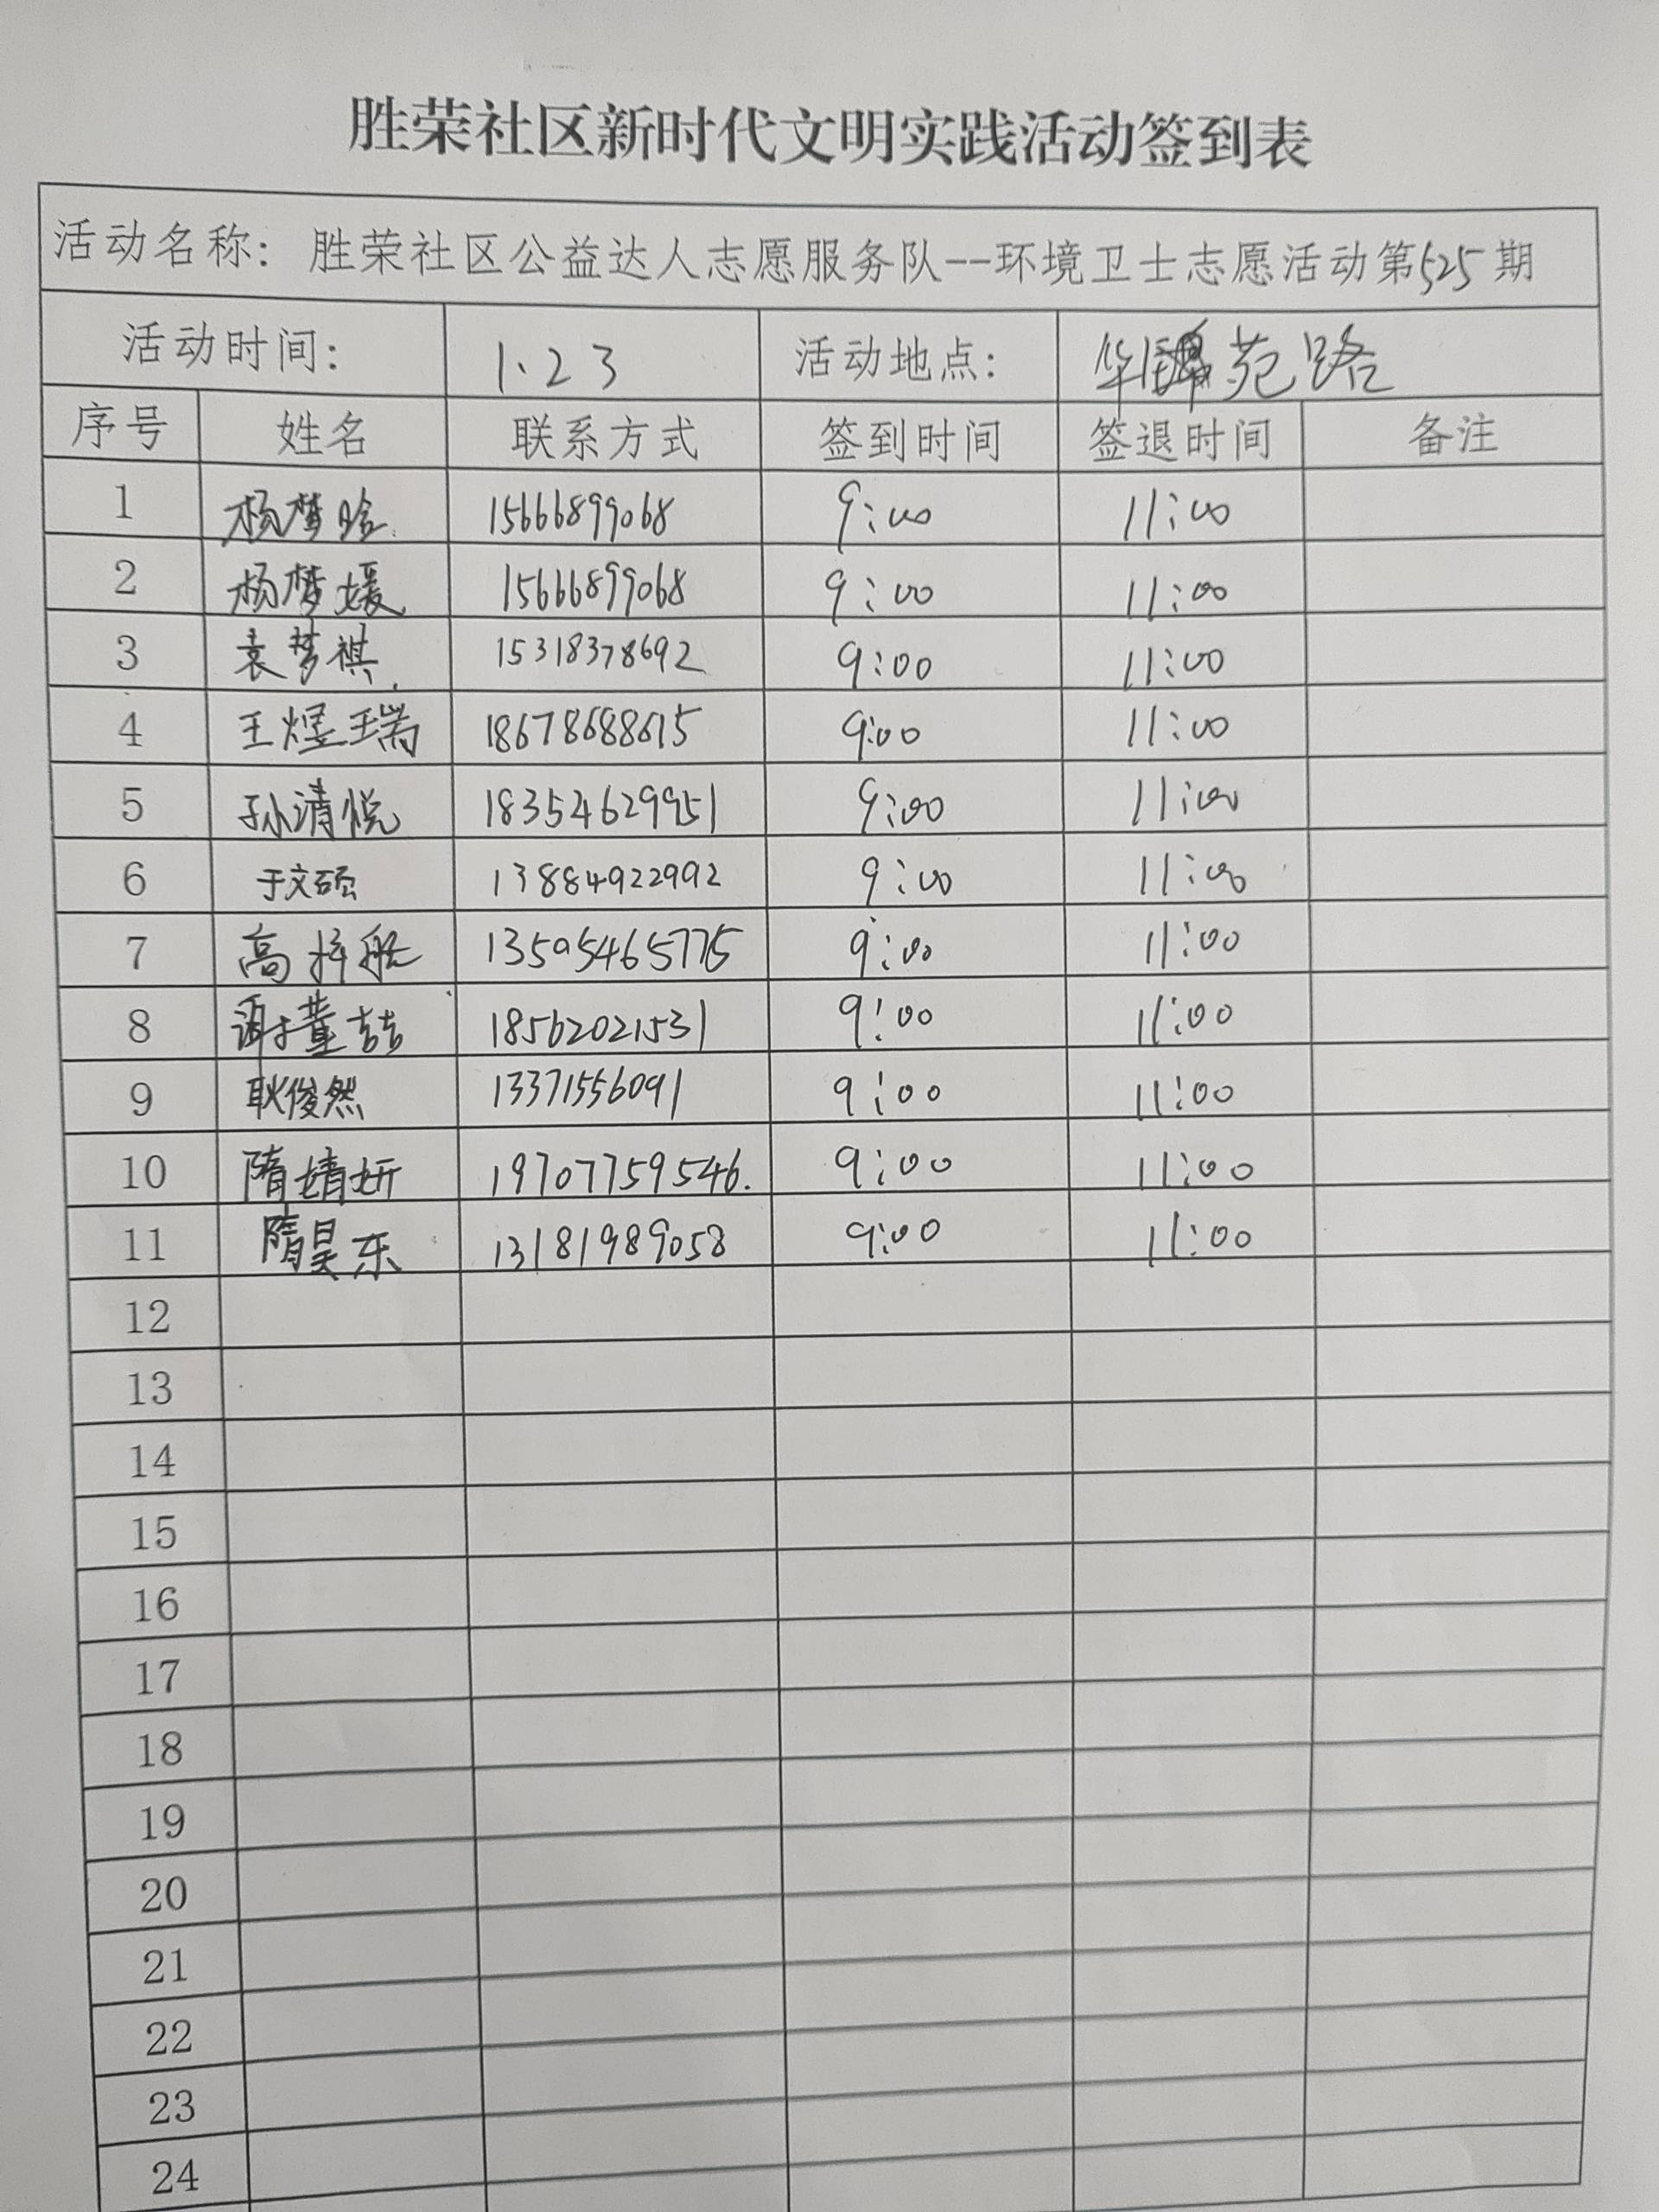 胜荣社区新时代文明实践活动签到表
活动名称：胜荣社区公益达人志愿服务队--环境卫士志愿活动第525期
活动时间： 1.23 活动地点： 华苑路
序号 姓名 联系方式 签到时间 签退时间 备注
1 杨梦晗 15666899068 9:00 11:00
2 杨梦媛 15666899068 9:00 11:00
3 袁梦祺 15318378692 9:00 11:00
4 王煜瑞 18678688615 9:00 11:00
5 孙清悦 18354629951 9:00 11:00
6 于文硕 13884922992 9:00 11:00
7 高梓航 13595465775 9:00 11:00
8 谢董喆 18562021531 9:00 11:00
9 耿俊然 13371556091 9:00 11:00
10 隋婧妍 19707759546. 9:00 11:00
11 隋昊东 13181989058 9:00 11:00
12
13
14
15
16
17
18
19
20
21
22
23
24